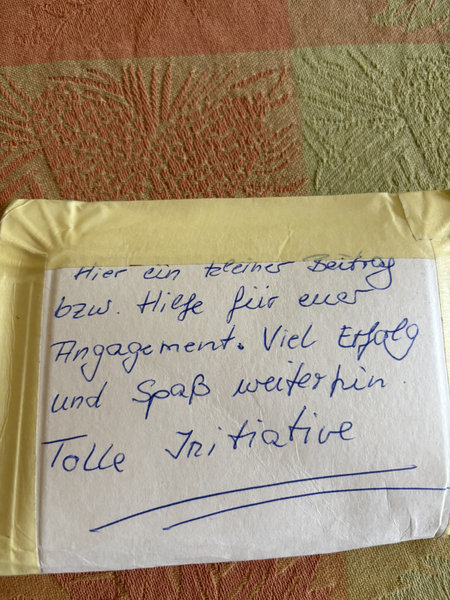 Hier ein kleiner Beitrag
bzw. Hilfe für euer
Angagement. Viel Erfolg
und Spaß weiterhin.
Tolle Initiative